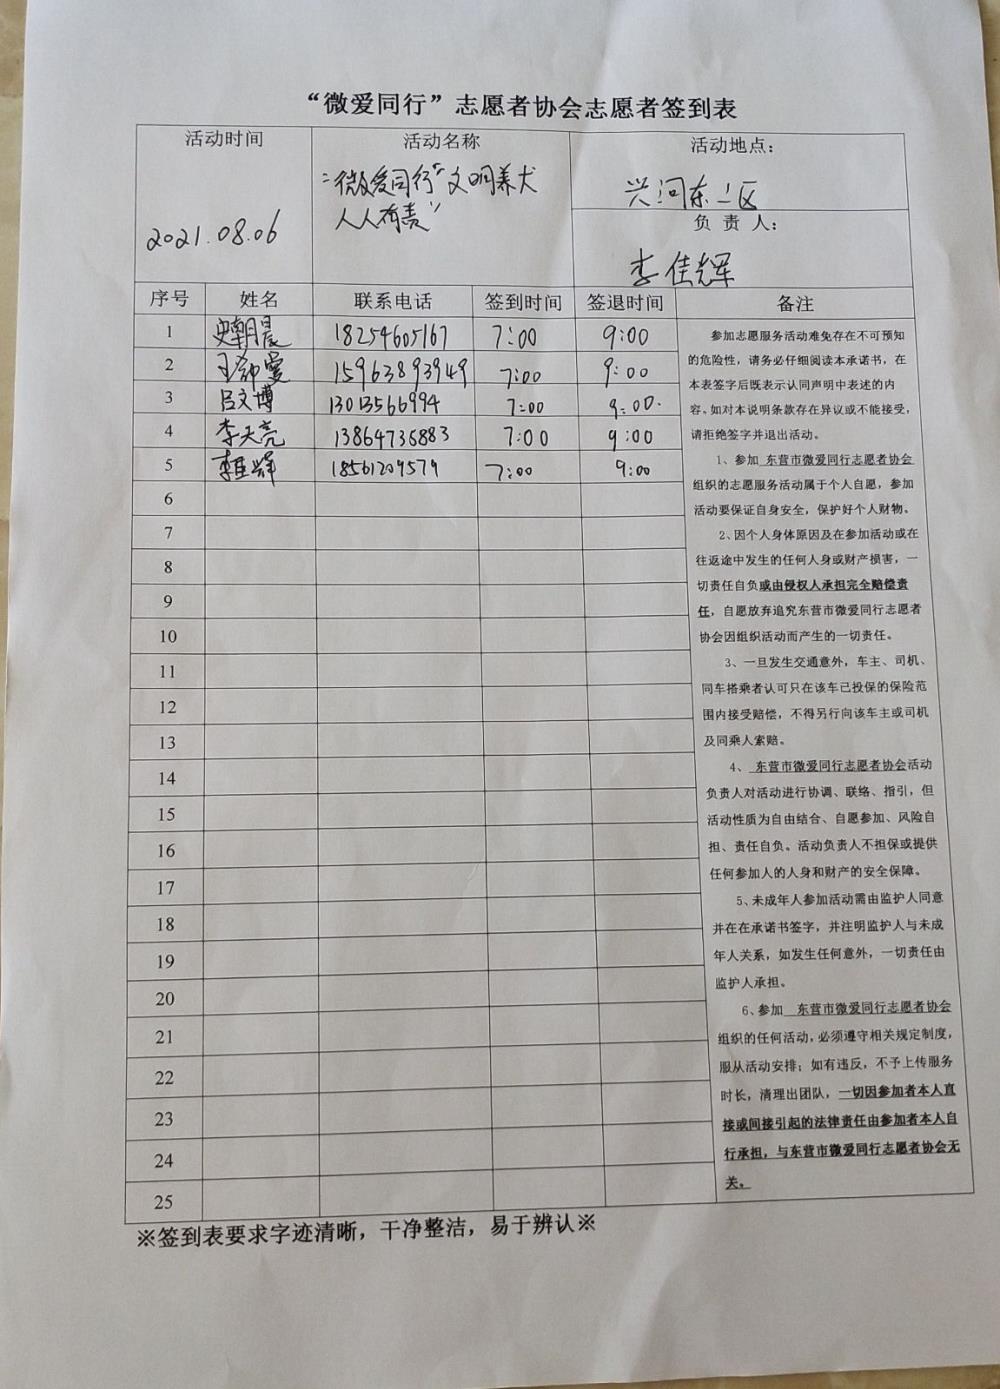 “微爱同行”志愿者协会志愿者签到表
活动时间
2021.08.06
活动名称
“微爱同行”文明养犬
人人有责”
活动地点：
兴河东二区
负 责 人：
李佳辉
序号 姓名 联系电话 签到时间 签退时间 备注
1 史朝晨 18254605167 7:00 9:00
2 15963893949 7:00 9:00
3 吕文博 13013566994 7:00 9:00.
4 李天亮 13864736883 7:00 9:00
5 李佳辉 18561209579 7:00 9:00
6
7
8
9
10
11
12
13
14
15
16
17
18
19
20
21
22
23
24
25
参加志愿服务活动难免存在不可预知
的危险性，请务必仔细阅读本承诺书，在
本表签字后既表示认同声明中表述的内
容。如对本说明条款存在异议或不能接受，
请拒绝签字并退出活动。
1、参加 东营市微爱同行志愿者协会
组织的志愿服务活动属于个人自愿，参加
活动要保证自身安全，保护好个人财物。
2、因个人身体原因及在参加活动或在
往返途中发生的任何人身或财产损害，一
切责任自负或由侵权人承担完全赔偿责
任，自愿放弃追究东营市微爱同行志愿者
协会因组织活动而产生的一切责任。
3、一旦发生交通意外，车主、司机、
同车搭乘者认可只在该车已投保的保险范
围内接受赔偿，不得另行向该车主或司机
及同乘人索赔。
4、 东营市微爱同行志愿者协会活动
负责人对活动进行协调、联络、指引，但
活动性质为自由结合、自愿参加、风险自
担、责任自负。活动负责人不担保或提供
任何参加人的人身和财产的安全保障。
5、未成年人参加活动需由监护人同意
并在在承诺书签字，并注明监护人与未成
年人关系，如发生任何意外，一切责任由
监护人承担。
6、参加 东营市微爱同行志愿者协会
组织的任何活动，必须遵守相关规定制度，
服从活动安排；如有违反，不予上传服务
时长，清理出团队，一切因参加者本人直
接或间接引起的法律责任由参加者本人自
行承担，与东营市微爱同行志愿者协会无
关。
※签到表要求字迹清晰，干净整洁，易于辨认※